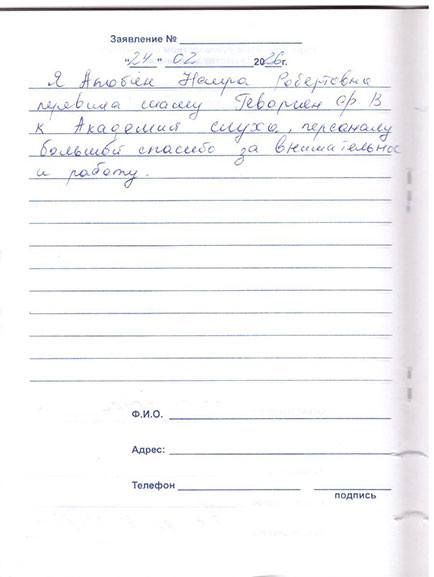 Заявление №
"24" 02 2026г.
Я Акобян Наира Робертовна
перевила маму Геворгиен Ф В
к Академия слуха, персаналу
большой спасибо за внимательно
и работу.
Ф.И.О.
Адрес:
Телефон
подпись